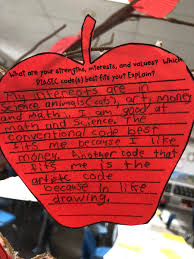 What are your strengths, interests, and values? Which
RIASEC code(s) best fits you? Explain!
My interests are in
science, animals (cats), art, money
and math. I am good at
math and science. The
conventional code best
fits me because I like
money. Another code that
fits me is the
artistic code
because I like
drawing.